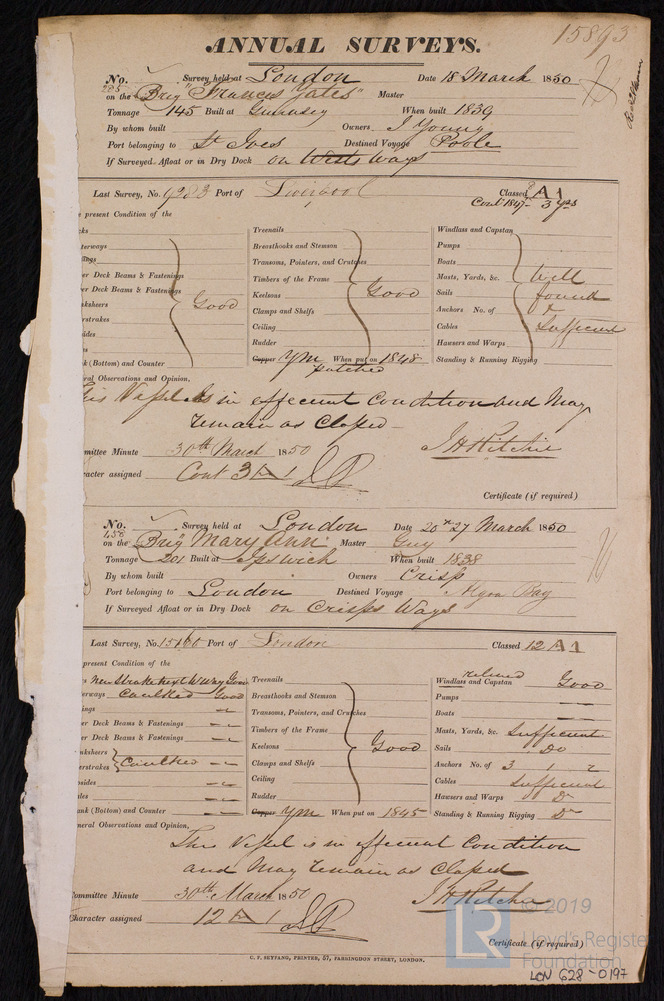 15893
ANNUAL SURVEYS.
No. Survey held at London Date 18 March 1850
285 on the Brig "Francis Yates" Master
Tonnage 145 Built at Guernsey When built 1839
By whom built Owners J Young
Port belonging to St Ives Destined Voyage Poole
If Surveyed Afloat or in Dry Dock on Witts Ways
Last Survey, No. 9283 Port of Liverpool Classed A1
Cont 1847 3 yrs
e present Condition of the
cks Treenails Windlass and Capstan
terways Breasthooks and Stemson Pumps
lings Transoms, Pointers, and Crutches Boats
er Deck Beams & Fastenings Timbers of the Frame Masts, Yards, &c. Well
er Deck Beams & Fastenings Good Keelsons Good Sails found
nksheers Clamps and Shelfs Anchors No. of &
erstrakes Ceiling Cables Sufficient
sides Rudder Hawsers and Warps
es Copper YM When put on 1848 Standing & Running Rigging
k (Bottom) and Counter patched
eral Observations and Opinion,
This Vessel is in effecient Condition and May
remain as Classed
mmittee Minute 30th March 1850 J H Ritchie
racter assigned Cont 3 A 1
Certificate (if required)
No. Survey held at London Date 20th 27 March 1850
456 on the Brig Mary Ann Master Guy
Tonnage 201 Built at Ipswich When built 1838
By whom built Owners Crisp
Port belonging to London Destined Voyage Algoa Bay
If Surveyed Afloat or in Dry Dock on Crisps Ways
Last Survey, No. 15160 Port of London Classed 12 A1
present Condition of the
New Strake next W Way Good Treenails Windlass and Capstan Good
erways Caulked Good Breasthooks and Stemson Pumps
ings Transoms, Pointers, and Crutches Boats
er Deck Beams & Fastenings Timbers of the Frame Masts, Yards, &c. Sufficient
er Deck Beams & Fastenings Keelsons Good Sails Do
nksheers Clamps and Shelfs Anchors No. of 3 1 2
erstrakes Caulked Ceiling Cables Sufficient
psides Rudder Hawsers and Warps Do
les Copper YM When put on 1845 Standing & Running Rigging Do
ank (Bottom) and Counter
neral Observations and Opinion,
This Vessel is in effecient Condition
and May remain as Classed
ommittee Minute 30th March 1850 J H Ritchie
Character assigned 12 A 1
Certificate (if required)
C. F. SEYFANG, PRINTER, 57, FARRINGDON STREET, LONDON.
LR
© 2019
Lloyd's Register
Foundation
LON 628-0197